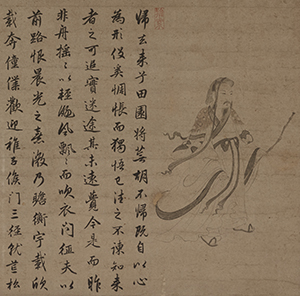 歸去来兮田園將蕪胡不歸既自以心
為形役奚惆悵而獨悟已往之不諫知来
者之可追實迷途其未遠覺今是而昨
非舟摇々以輕颺風飄々而吹衣問征夫以
前路恨晨光之熹微乃瞻衡宇載欣
載奔僮僕歡迎稚子候門三徑就荒松